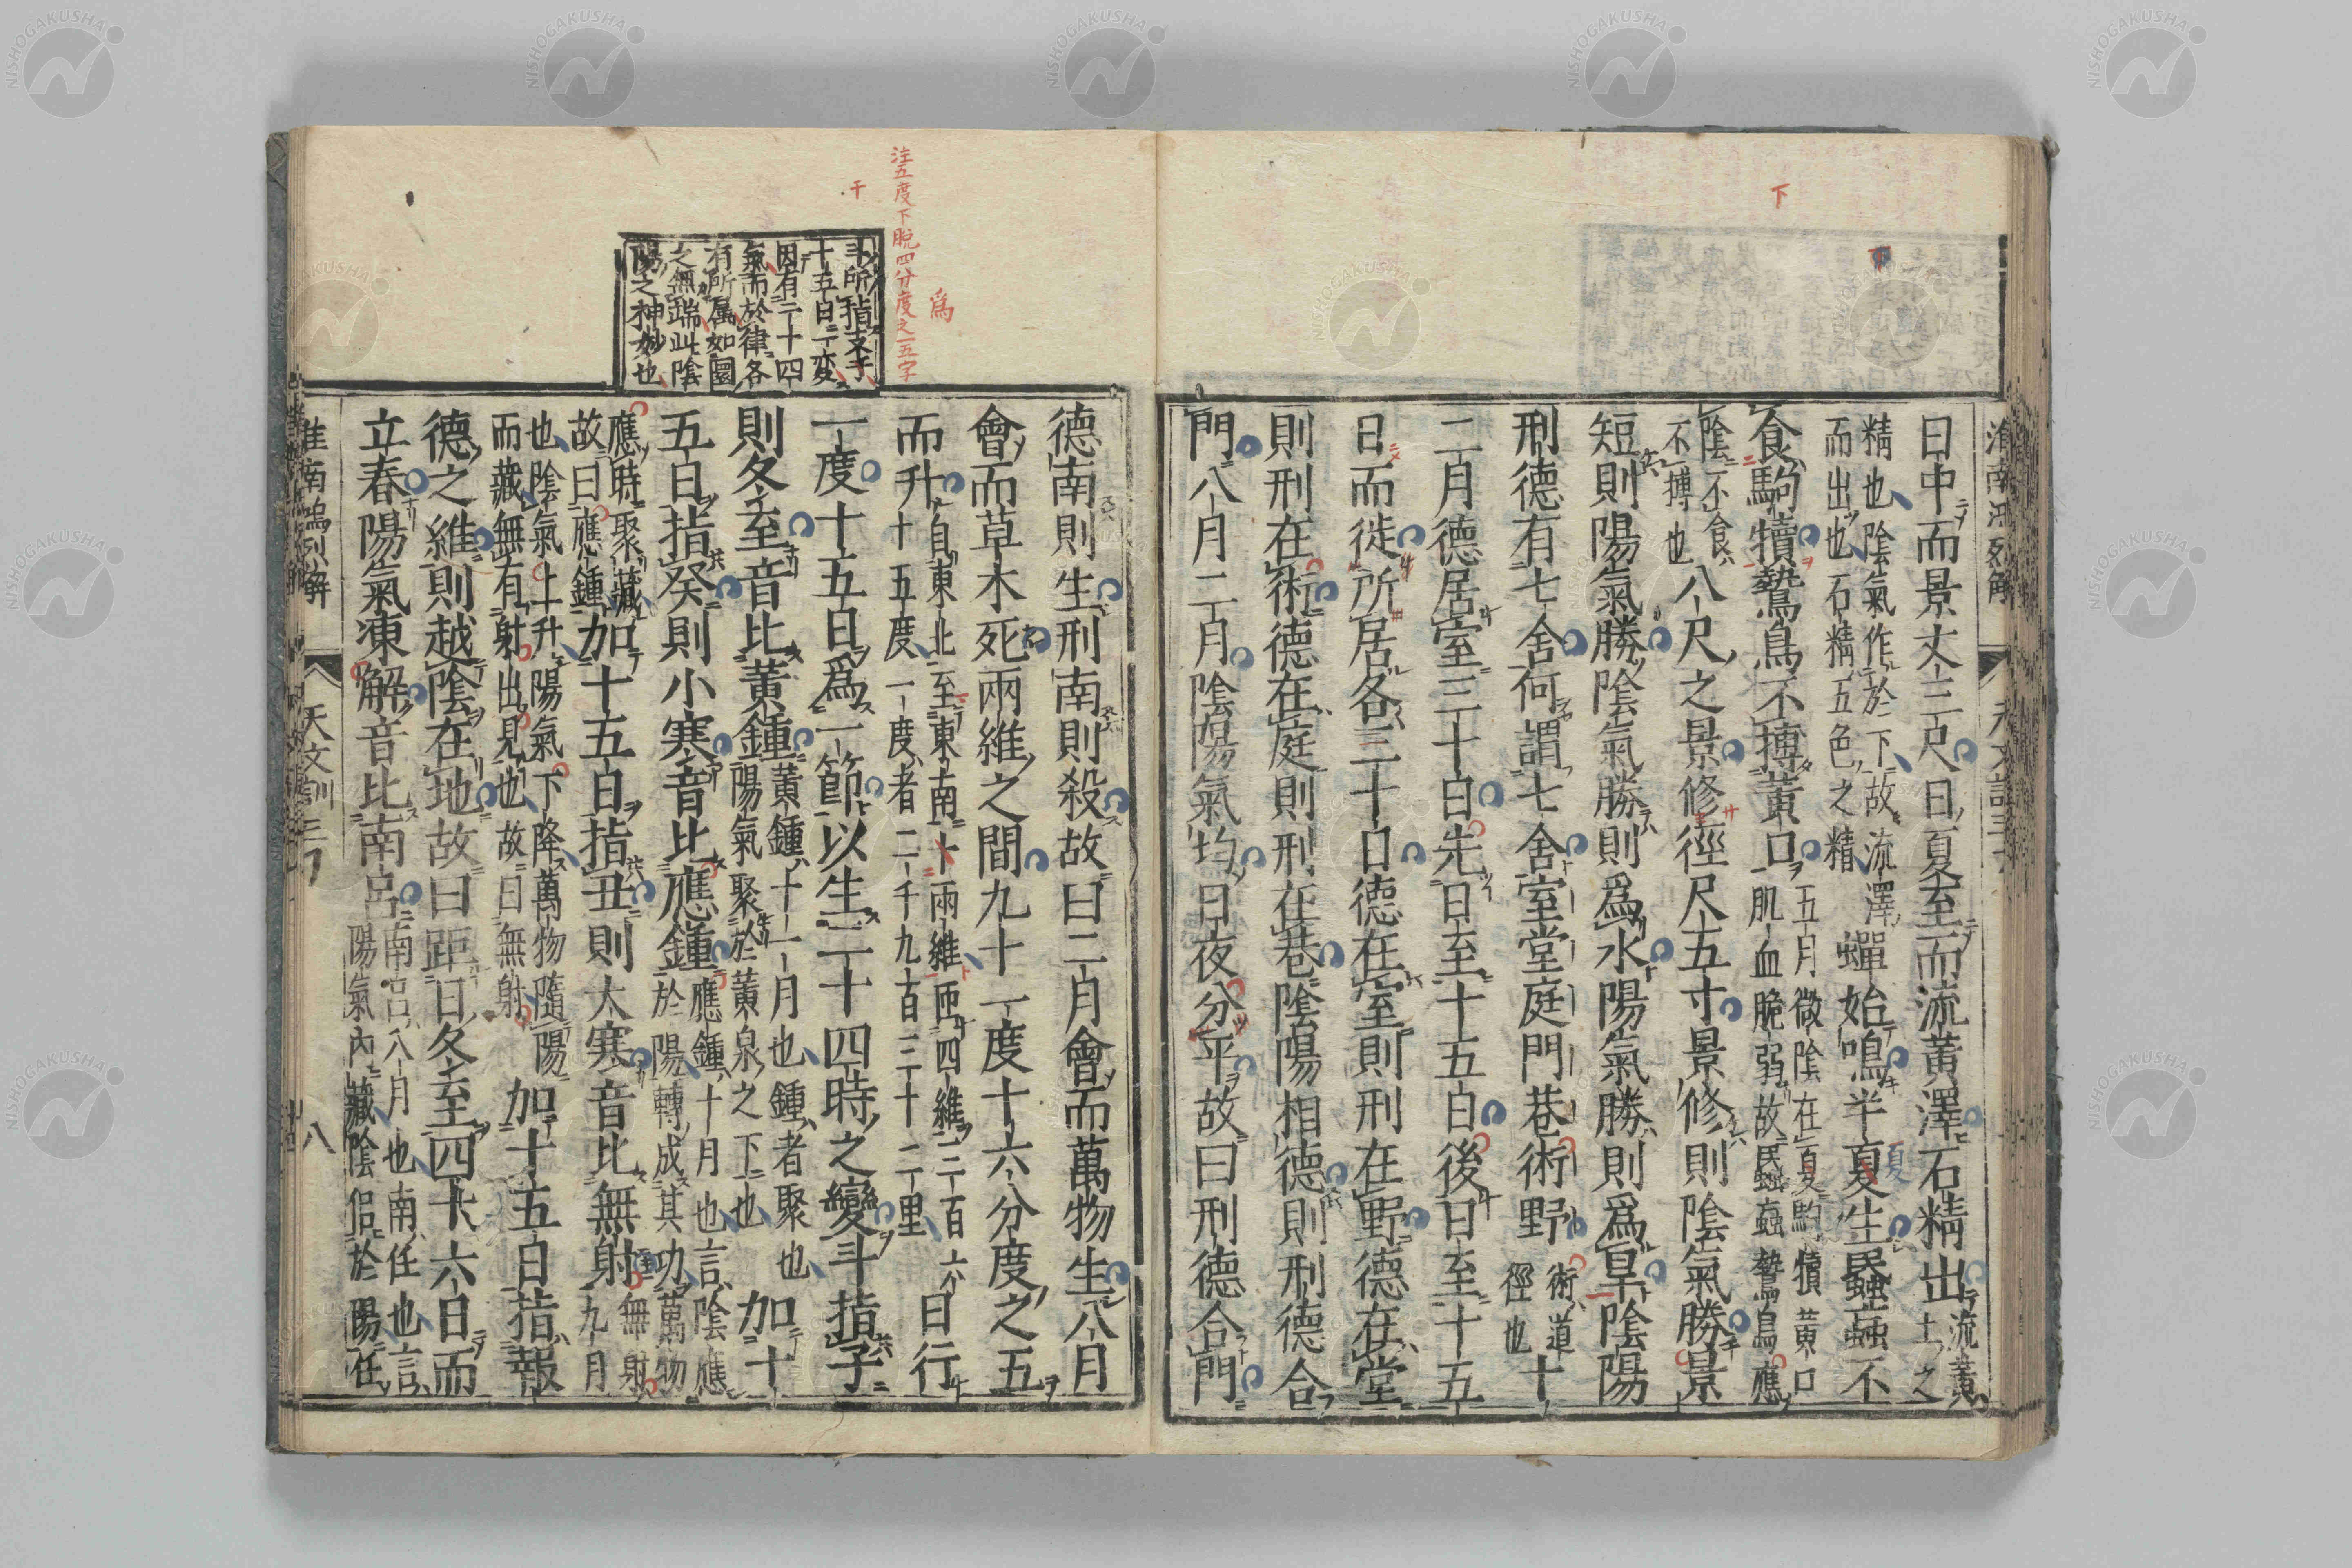 淮南鴻烈解 天文訓三
日中而景丈三尺日夏至而流黃澤石精出流黃土之
精也陰氣作於下故流澤
而出也石精五色之精
蟬始鳴半夏生蟁蝱不
食駒犢鷙鳥不搏黃口五月微陰在夏駒犢黃口
肌血脆弱故蟁蝱鷙鳥應
陰不食
不搏也
八尺之景修徑尺五寸景修則陰氣勝景
短則陽氣勝陰氣勝則爲水陽氣勝則爲旱陰陽
刑德有七舍何謂七舍室堂庭門巷術野術道
徑也
十
二月德居室三十日先日至十五日後日至十五
日而徙所居各三十日德在室則刑在野德在堂
則刑在術德在庭則刑在巷陰陽相德則刑德合
門八月二月陰陽氣均日夜分平故曰刑德合門
下
德南則生刑南則殺故曰二月會而萬物生八月
會而草木死兩維之間九十一度十六分度之五
而升自東北至東南十兩維匝四維三百六
十五度一度者二千九百三十二里
日行
一度十五日爲一節以生二十四時之變斗指子
則冬至音比黃鍾黃鍾十一月也鍾者聚也
陽氣聚於黃泉之下也
加十
五日指癸則小寒音比應鍾應鍾十月也言陰應
於陽轉成其功萬物
應時聚藏
故曰應鍾
加十五日指丑則大寒音比無射無射九月
也陰氣上升陽氣下降萬物隨陽
而藏無有射出見也故曰無射
加十五日指報
德之維則越陰在地故曰距日冬至四十六日而
立春陽氣凍解音比南呂南呂八月也南任也言
陽氣內藏陰侶於陽任
淮南鴻烈解 天文訓三 八
斗所指支子
十五日一変
因有二十四
氣而於律各
有所属如圜
之無端此陰
陽之神妙也
注五度下脫四分度之一五字
爲
干